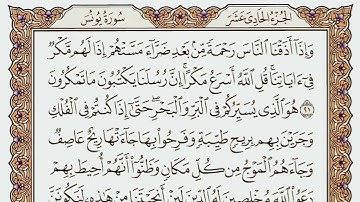 الجزء الحادي عشر
سورة يونس
وَإِذَآ أَذَقْنَا ٱلنَّاسَ رَحْمَةً مِّنۢ بَعْدِ ضَرَّآءَ مَسَّتْهُمْ إِذَا لَهُم مَّكْرٌ
فِىٓ ءَايَاتِنَا ۚ قُلِ ٱللَّهُ أَسْرَعُ مَكْرًا ۚ إِنَّ رُسُلَنَا يَكْتُبُونَ مَا تَمْكُرُونَ
٢١ هُوَ ٱلَّذِى يُسَيِّرُكُمْ فِى ٱلْبَرِّ وَٱلْبَحْرِ ۖ حَتَّىٰٓ إِذَا كُنتُمْ فِى ٱلْفُلْكِ
وَجَرَيْنَ بِهِم بِرِيحٍ طَيِّبَةٍ وَفَرِحُوا۟ بِهَا جَآءَتْهَا رِيحٌ عَاصِفٌ
وَجَآءَهُمُ ٱلْمَوْجُ مِن كُلِّ مَكَانٍ وَظَنُّوٓا۟ أَنَّهُمْ أُحِيطَ بِهِمْ ۙ
دَعَوُا۟ ٱللَّهَ مُخْلِصِينَ لَهُ ٱلدِّينَ لَئِنْ أَنجَيْتَنَا مِنْ هَٰذِهِۦ لَنَكُونَنَّ